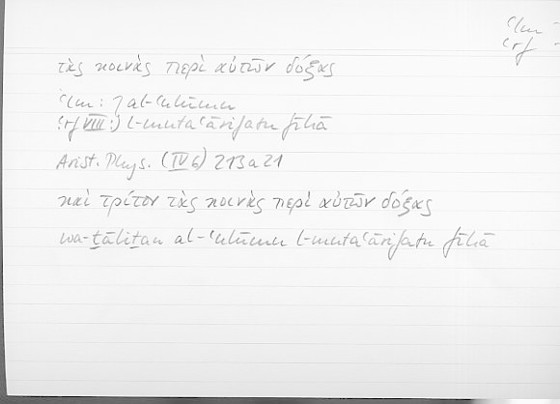 ʿlm –
ʿrf –
τὰς κοινὰς περὶ αὐτῶν δόξας
ʿlm: al-ʿulūmu
ʿrf VIII: l-mutaʿārifatu fīhā
Arist. Phys. (IV 6) 213 a 21
καὶ τρίτον τὰς κοινὰς περὶ αὐτῶν δόξας
wa-ṯāliṯan al-ʿulūmu l-mutaʿārifatu fīhā